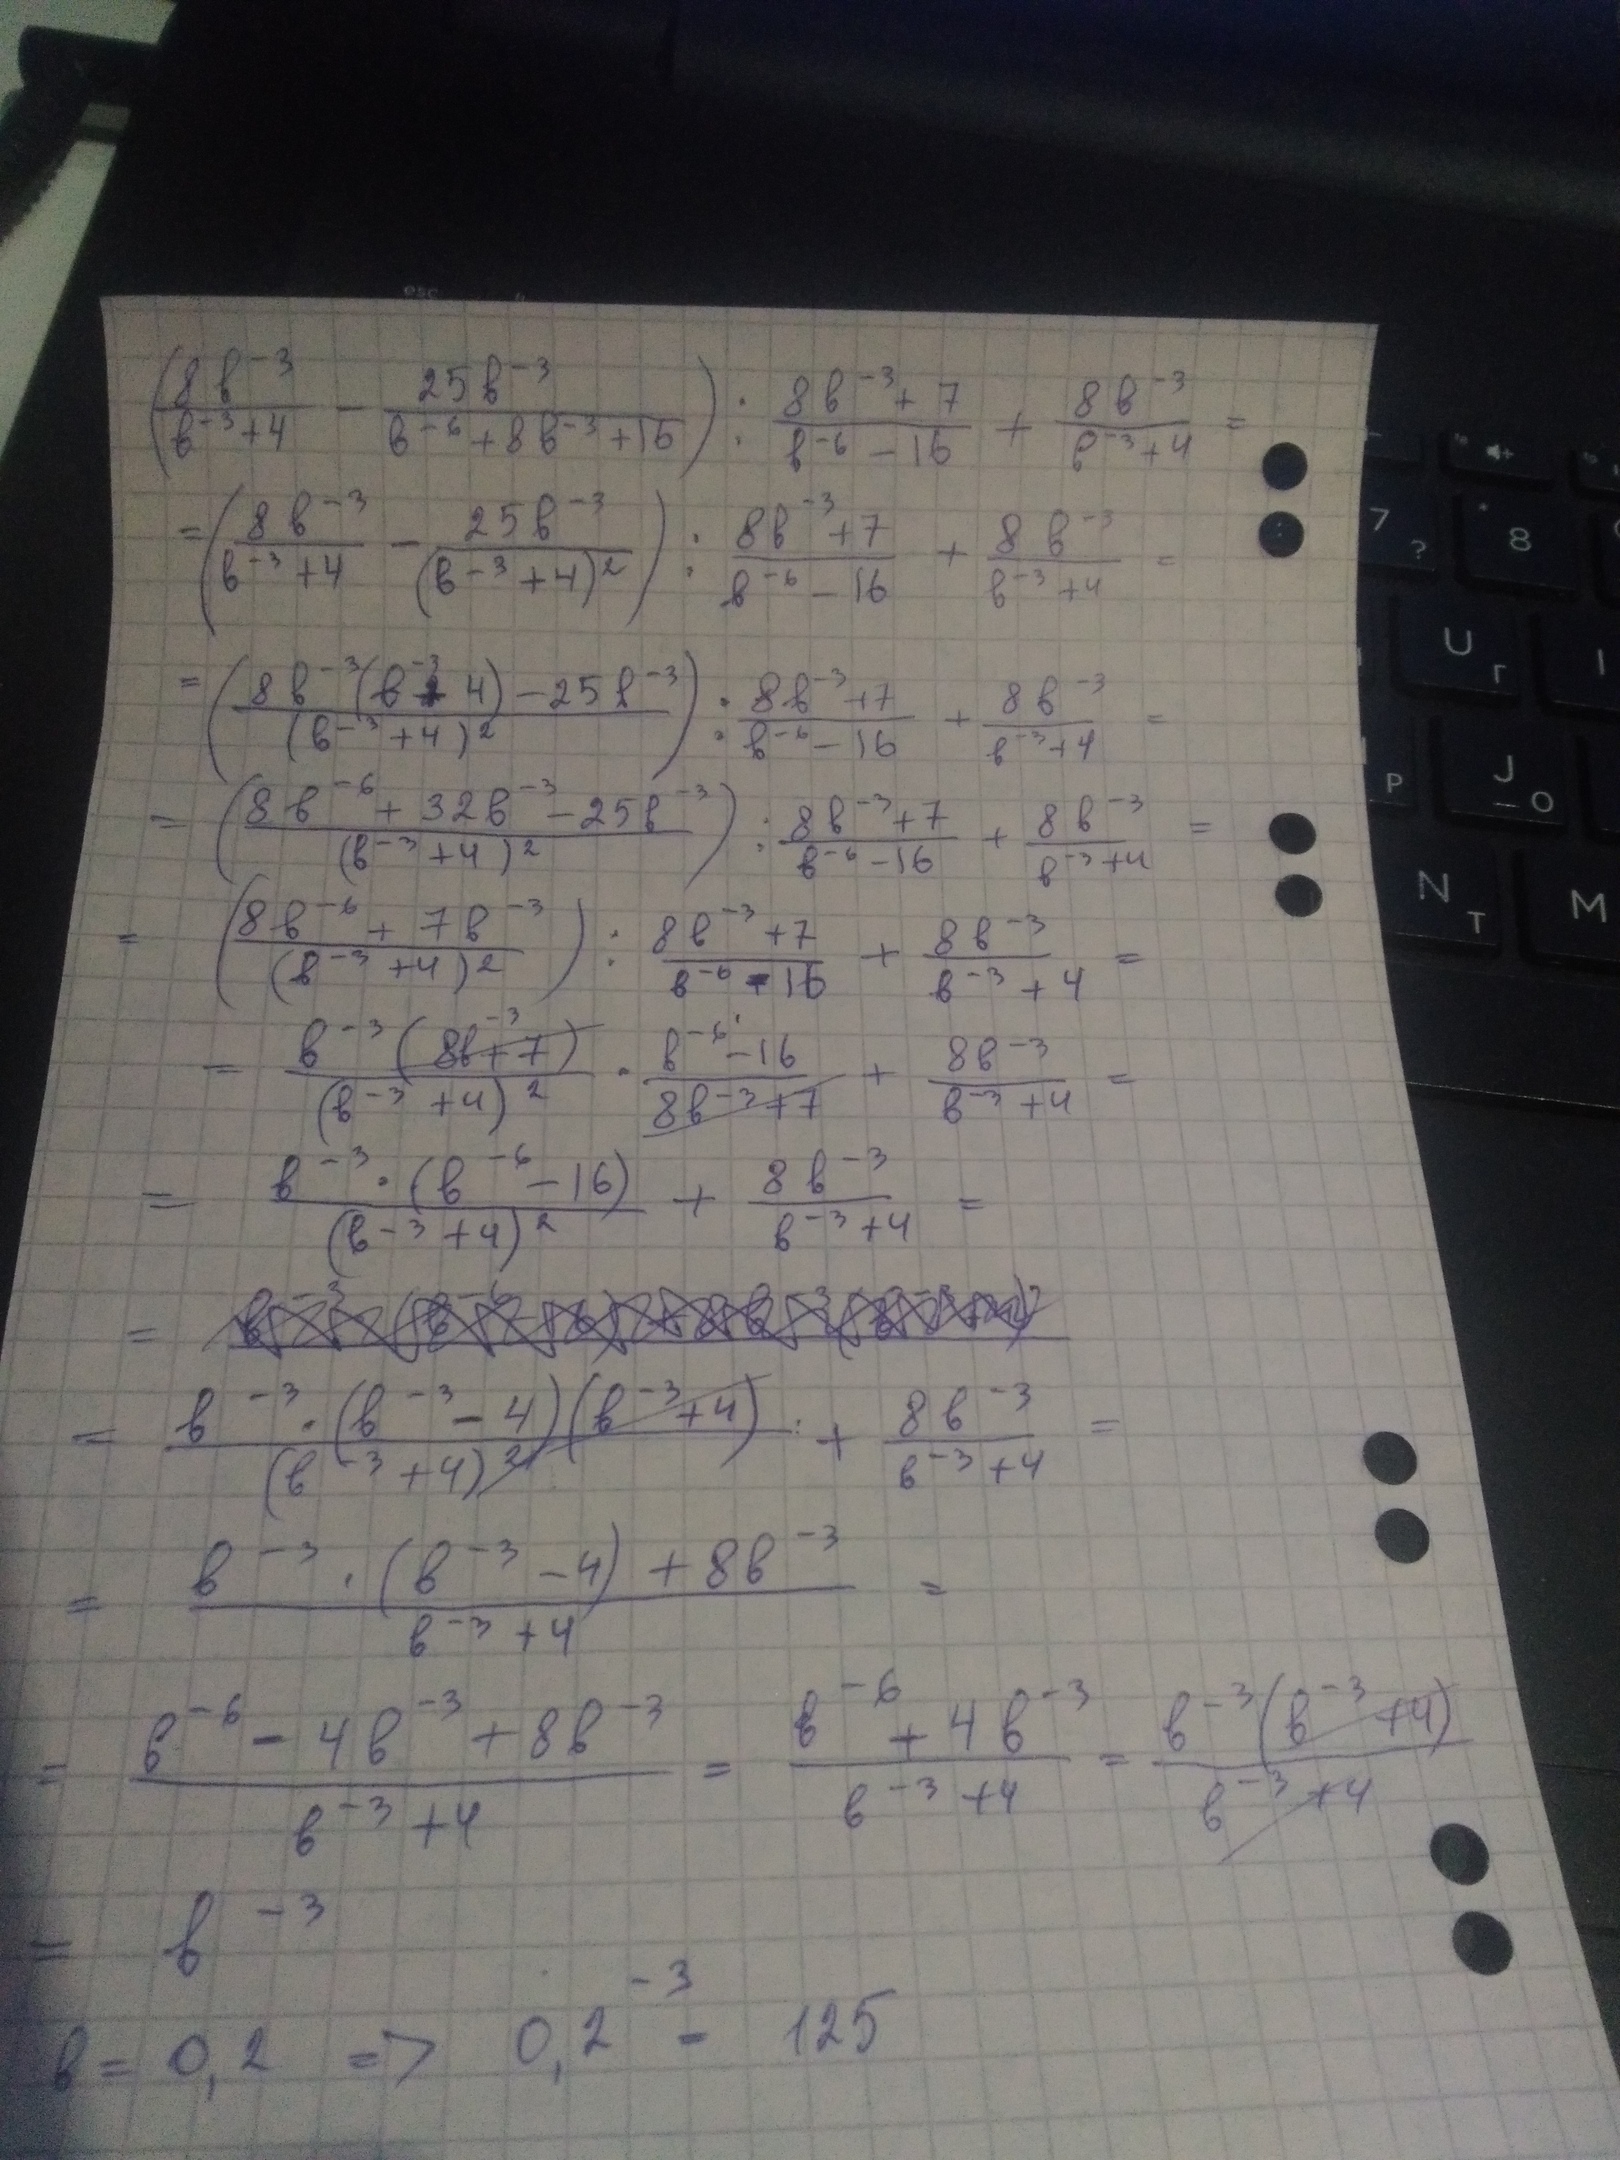 esc
(8b⁻³/(b⁻³+4) − 25b⁻³/(b⁻⁶+8b⁻³+16)) : (8b⁻³+7)/(b⁻⁶−16) + 8b⁻³/(b⁻³+4) =
=(8b⁻³/(b⁻³+4) − 25b⁻³/(b⁻³+4)²) : (8b⁻³+7)/(b⁻⁶−16) + 8b⁻³/(b⁻³+4) =
=((8b⁻³(b⁻³+4)−25b⁻³)/(b⁻³+4)²) : (8b⁻³+7)/(b⁻⁶−16) + 8b⁻³/(b⁻³+4) =
=((8b⁻⁶+32b⁻³−25b⁻³)/(b⁻³+4)²) : (8b⁻³+7)/(b⁻⁶−16) + 8b⁻³/(b⁻³+4) =
=((8b⁻⁶+7b⁻³)/(b⁻³+4)²) : (8b⁻³+7)/(b⁻⁶−16) + 8b⁻³/(b⁻³+4) =
= b⁻³(8b⁻³+7)/(b⁻³+4)² · (b⁻⁶−16)/(8b⁻³+7) + 8b⁻³/(b⁻³+4) =
= b⁻³·(b⁻⁶−16)/(b⁻³+4)² + 8b⁻³/(b⁻³+4) =
=
= b⁻³·(b⁻³−4)(b⁻³+4)/(b⁻³+4)² + 8b⁻³/(b⁻³+4) =
= (b⁻³·(b⁻³−4)+8b⁻³)/(b⁻³+4) =
= (b⁻⁶−4b⁻³+8b⁻³)/(b⁻³+4) = (b⁻⁶+4b⁻³)/(b⁻³+4) = b⁻³(b⁻³+4)/(b⁻³+4)
= b⁻³
b = 0,2 => 0,2⁻³ - 125
7 ?
* 8
U Г
I
P
J O
N T
M